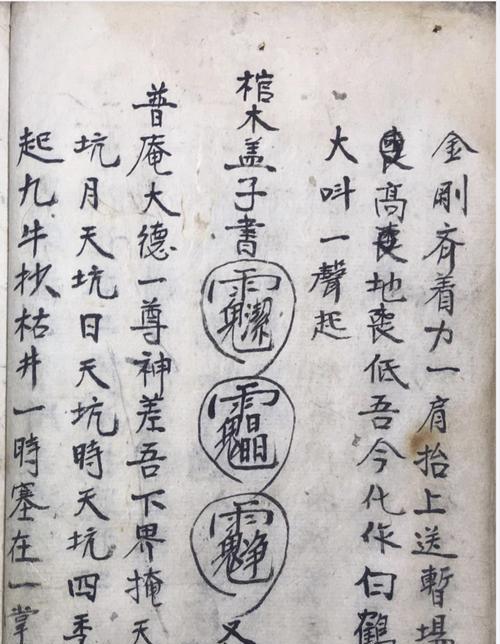 金剛斉着力一肩抬上送暫場
喪高喪地喪低吾今化作白鶴
大叫一聲起
棺木盖子書
又
普庵大德一尊神差吾下界掩天
坑月天坑日天坑時天坑四季
起九牛抄枯井一時塞在一掌